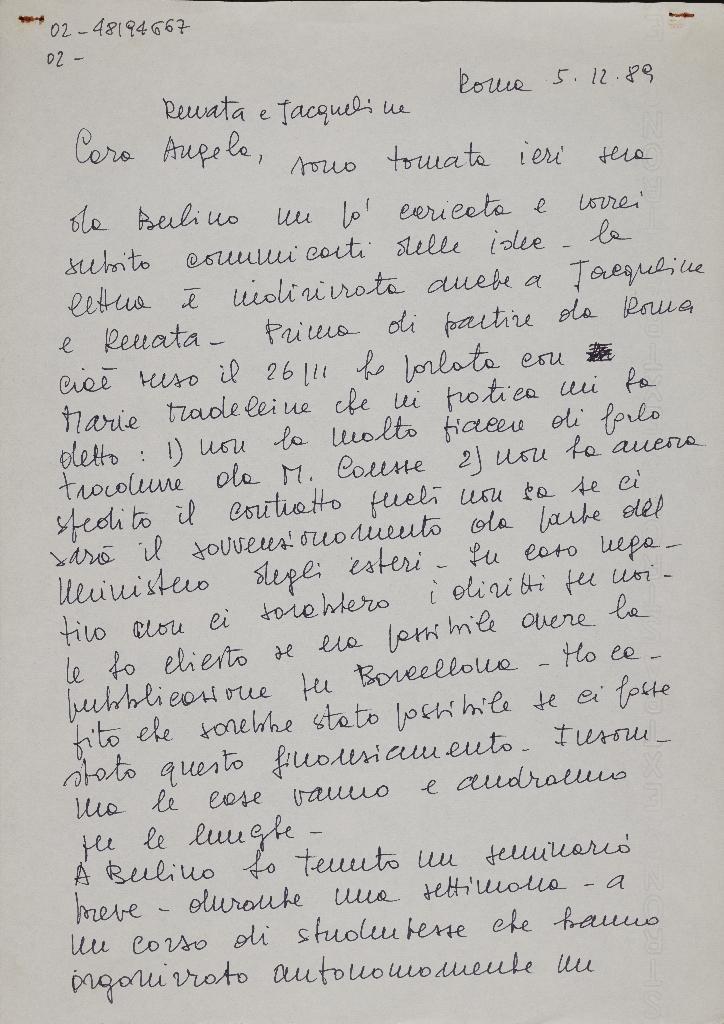 02-48194667
02-
Roma 5.12.89
Renata e Jacqueline
Cara Angela, sono tornata ieri sera
da Berlino un po' caricata e vorrei
subito comunicarti delle idee - la
lettera è indirizzata anche a Jacqueline
e Renata - Prima di partire da Roma
cioè verso il 26/11 ho parlato con
Marie Madeleine che in pratica mi ha
detto: 1) non ha molto piacere di farlo
tradurre da M. Causse 2) non ha ancora
spedito il contratto perché non sa se ci
sarà il sovvenzionamento da parte del
Ministero degli esteri - In caso nega-
tivo non ci sarebbero i diritti per noi -
le ho chiesto se era possibile avere la
pubblicazione per Barcellona - Ho ca-
pito che sarebbe stato possibile se ci fosse
stato questo finanziamento - Insom-
ma le cose vanno e andranno
per le lunghe -
A Berlino ho tenuto un seminario
breve - durante una settimana - a
un corso di studentesse che hanno
organizzato autonomamente un